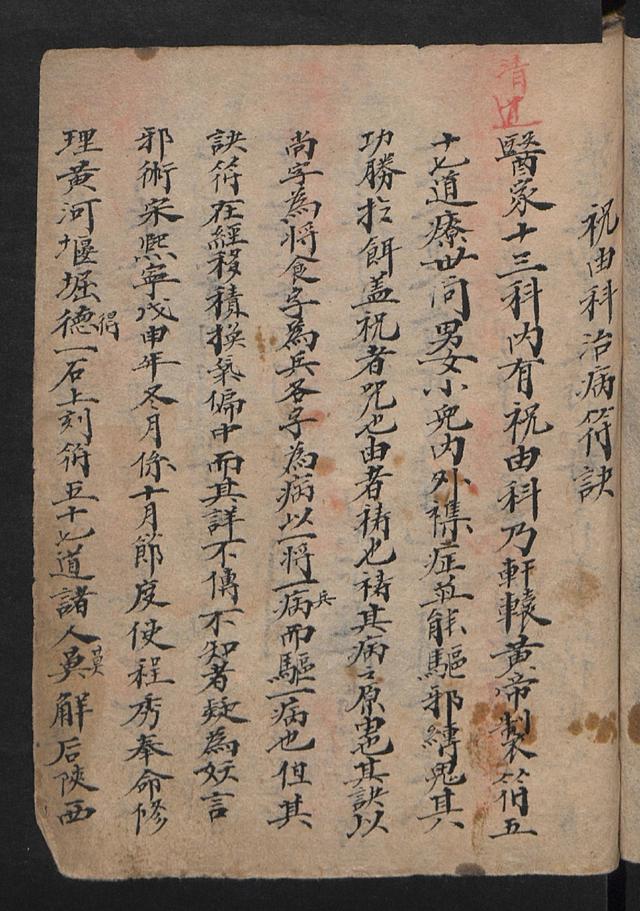 祝由科治病符訣
清道
醫家十三科内有祝由科乃軒轅黄帝製符五
十七道療世间男女小兒内外襍症並能驅邪縛鬼其
功勝扵餌盖祝者咒也由者禱也禱其病之原患其訣以
尚字為将食字為兵各字為病以一将一兵病而驅一病也但其
訣符在經移積换氣偏中而其詳不傳不知者疑為妖言
邪術宋熈寧戊申年冬月係十月節度使程秀奉命修
理黄河堰掘德得一石上刻符五十七道諸人莫解后陝西